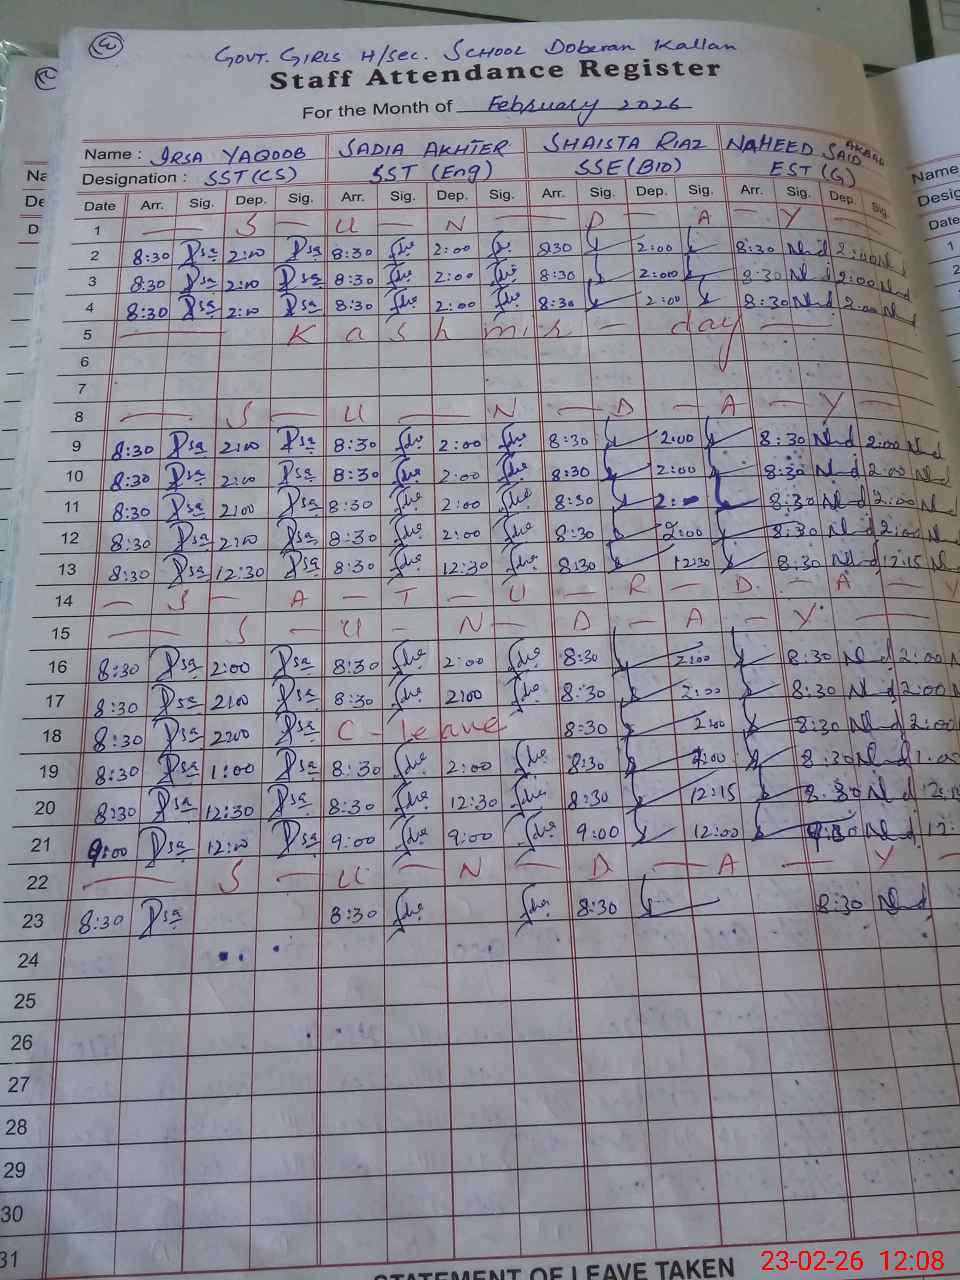 GOVT. GIRLS H/Sec. SCHOOL Doberan Kallan
Staff Attendance Register
For the Month of February 2026
Name : IRSA YAQOOB SADIA AKHTER SHAISTA RIAZ NAHEED SAID AKBAR
Designation : SST (CS) SST (Eng) SSE (BIO) EST (G)
Date Arr. Sig. Dep. Sig. Arr. Sig. Dep. Sig. Arr. Sig. Dep. Sig. Arr. Sig. Dep. Sig.
1 S U N D A Y
2 8:30 2:00 8:30 2:00 8:30 2:00 8:30 2:00
3 8:30 2:00 8:30 2:00 8:30 2:00 8:30 2:00
4 8:30 2:00 8:30 2:00 8:30 2:00 8:30 2:00
5 Kashmir day
6
7
8 S U N D A Y
9 8:30 2:00 8:30 2:00 8:30 2:00 8:30 2:00
10 8:30 2:00 8:30 2:00 8:30 2:00 8:30 2:00
11 8:30 2:00 8:30 2:00 8:30 8:30 2:00
12 8:30 2:00 8:30 2:00 8:30 2:00 8:30 2:00
13 8:30 12:30 8:30 12:30 8:30 12:30 8:30 12:15
14 S A T U R D A Y
15 S U N D A Y
16 8:30 2:00 8:30 2:00 8:30 2:00 8:30 2:00
17 8:30 2:00 8:30 2:00 8:30 2:00 8:30 2:00
18 8:30 2:00 C-leave 8:30 2:00 8:30 2:00
19 8:30 1:00 8:30 2:00 8:30 8:30 1:00
20 8:30 12:30 8:30 12:30 8:30 12:15 8:30
21 9:00 12:00 9:00 9:00 9:00 12:00
22 S U N D A Y
23 8:30 8:30 8:30 8:30
24
25
26
27
28
29
30
31
STATEMENT OF LEAVE TAKEN
23-02-26 12:08